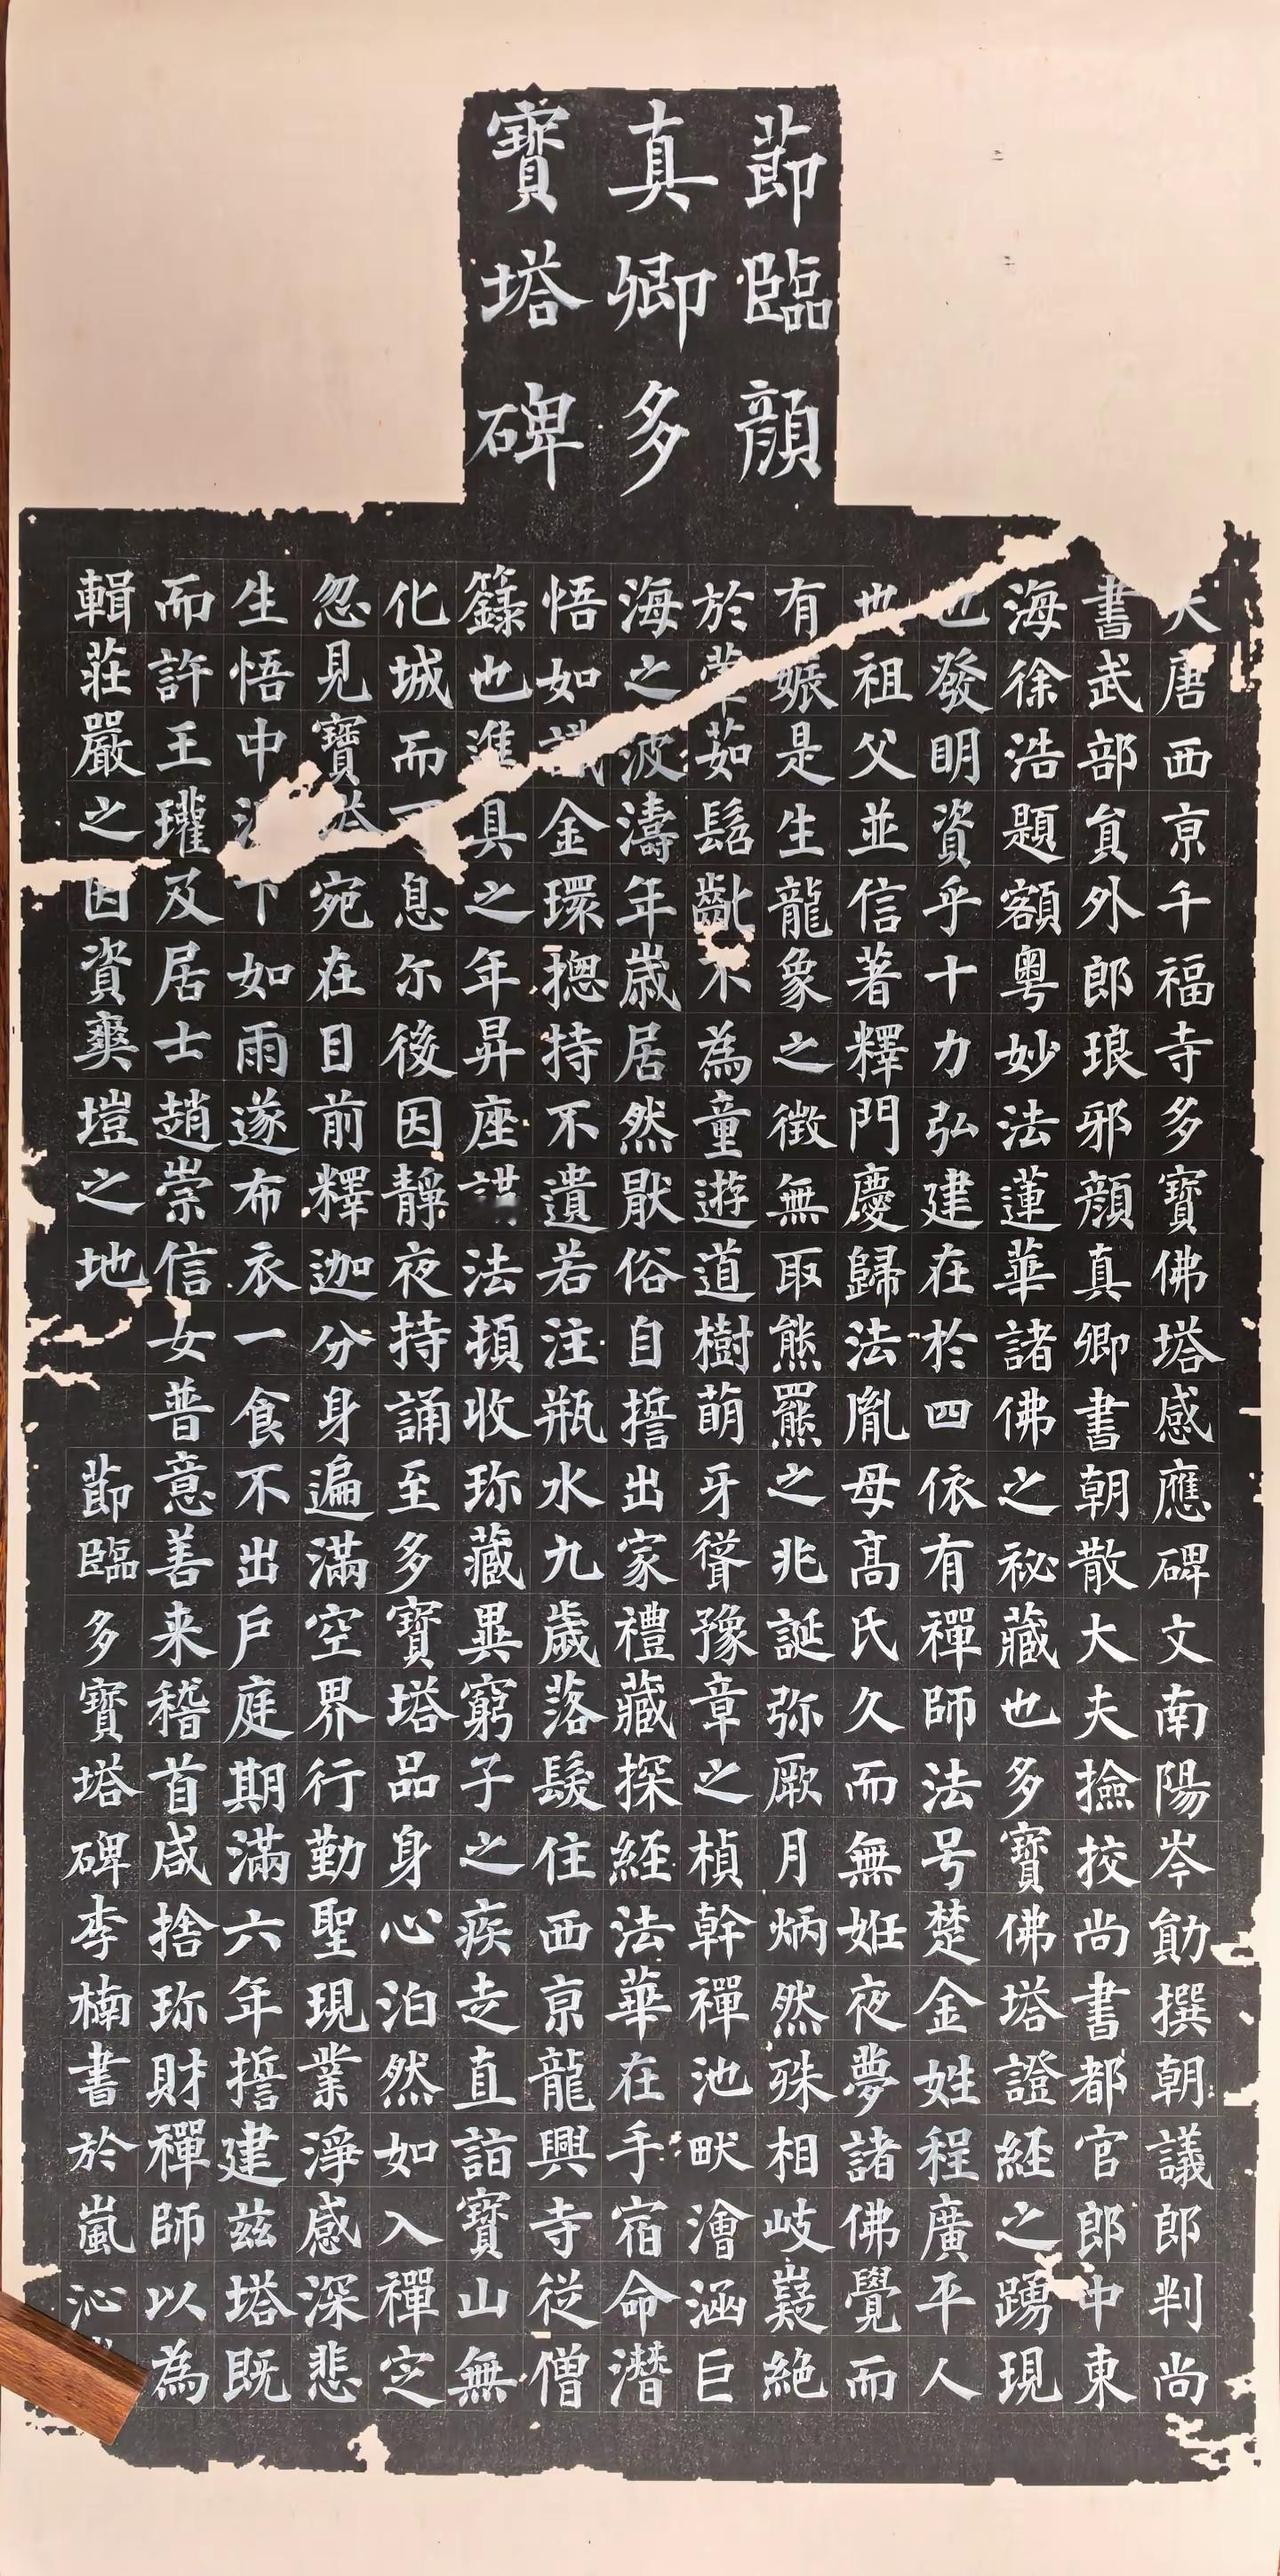 節臨顏
真卿多
寶塔碑
大唐西京千福寺多寶佛塔感應碑文南陽岑勛撰朝議郎判尚
書武部負外郎琅邪顏真卿書朝散大夫撿挍尚書都官郎中東
海徐浩題額粤妙法蓮華諸佛之祕藏也多寶佛塔證経之踴現
也發明資乎十力弘建在於四依有禪師法号楚金姓程廣平人
也祖父並信著釋門慶歸法胤母髙氏久而無姙夜夢諸佛覺而
有娠是生龍象之徵無取熊羆之兆誕弥厥月炳然殊相岐嶷絕
於葷茹髫齔不為童遊道樹萌牙聳豫章之楨幹禪池畎澮涵巨
海之波濤年歲居然猒俗自誓出家禮藏探経法華在手宿命潛
悟如識金環揔持不遺若注瓶水九歲落髮住西京龍興寺從僧
籙也進具之年昇座講法頓收珎藏異窮子之疾走直詣寶山無
化城而可息尔後因靜夜持誦至多寶塔品身心泊然如入禪定
忽見寶塔宛在目前釋迦分身遍滿空界行勤聖現業淨感深悲
生悟中淚下如雨遂布衣一食不出戶庭期滿六年誓建茲塔既
而許王瓘及居士趙崇信女普意善来稽首咸捨珎財禪師以為
輯莊嚴之因資爽塏之地 節臨多寶塔碑李楠書於嵐沁